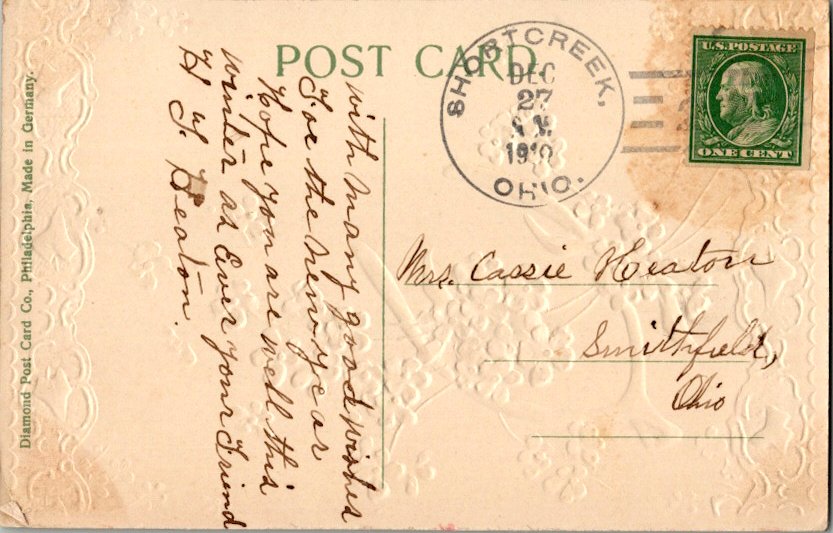 POST CARD
SHORTCREEK,
DEC
27
A.M.
1910
OHIO.
U.S. POSTAGE
ONE CENT
with many good wishes
For the New year
Hope you are well this
winter as Ever your Friend
H. T. Heaton.
Mrs. Cassie Heaton
Smithfield,
Ohio
Diamond Post Card Co., Philadelphia, Made in Germany.